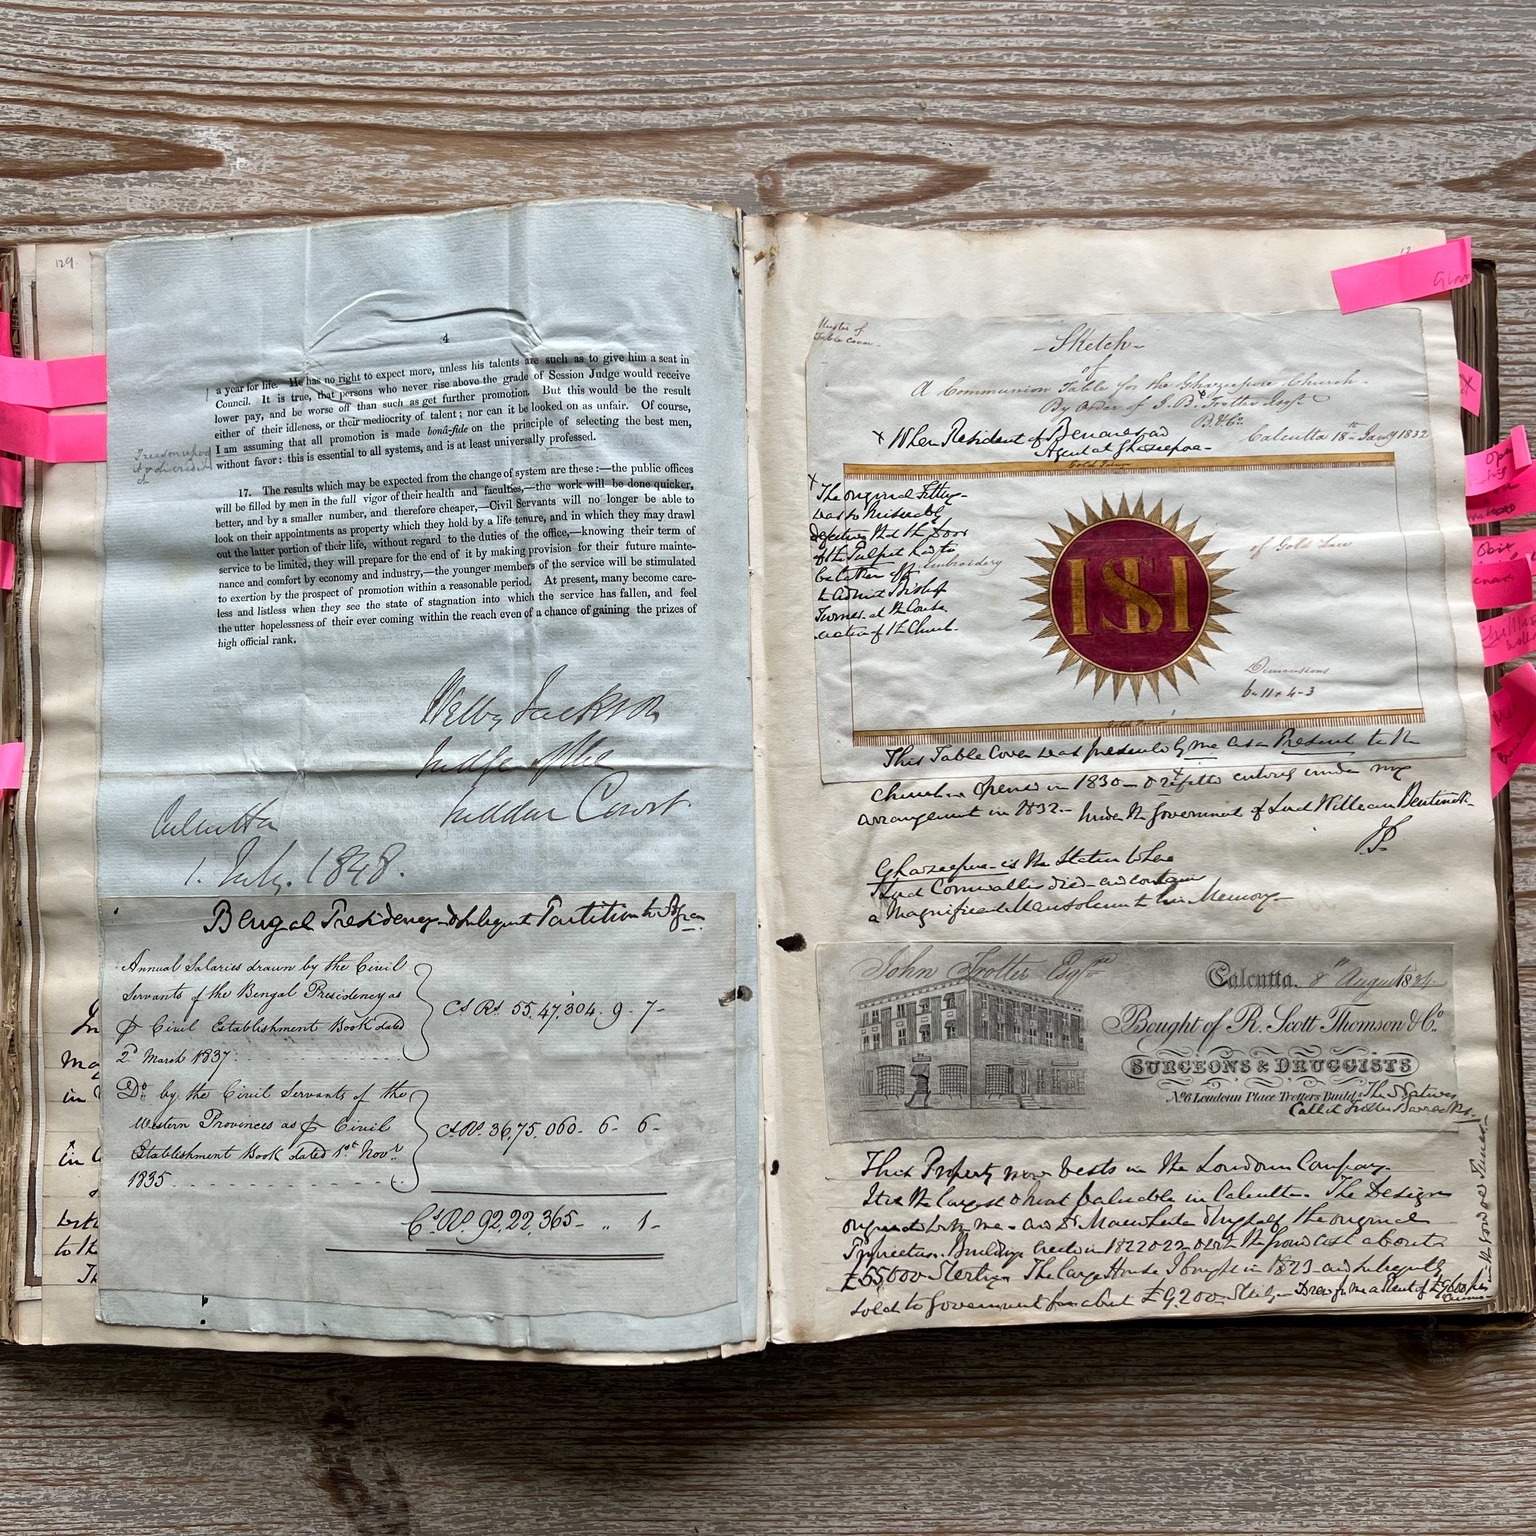 129
4
a year for life. He has no right to expect more, unless his talents are such as to give him a seat in
Council. It is true, that persons who never rise above the grade of Session Judge would receive
lower pay, and be worse off than such as get further promotion. But this would be the result
either of their idleness, or their mediocrity of talent; nor can it be looked on as unfair. Of course,
I am assuming that all promotion is made bonâ-fide on the principle of selecting the best men,
without favor: this is essential to all systems, and is at least universally professed.
17. The results which may be expected from the change of system are these:—the public offices
will be filled by men in the full vigor of their health and faculties,—the work will be done quicker,
better, and by a smaller number, and therefore cheaper,—Civil Servants will no longer be able to
look on their appointments as property which they hold by a life tenure, and in which they may drawl
out the latter portion of their life, without regard to the duties of the office,—knowing their term of
service to be limited, they will prepare for the end of it by making provision for their future mainte-
nance and comfort by economy and industry,—the younger members of the service will be stimulated
to exertion by the prospect of promotion within a reasonable period. At present, many become care-
less and listless when they see the state of stagnation into which the service has fallen, and feel
the utter hopelessness of their ever coming within the reach even of a chance of gaining the prizes of
high official rank.
Welby Jackson
Judge of the
Suddur Court
Calcutta
1. July. 1848.
Bengal Presidency & subsequent Partition to Agra
Annual Salaries drawn by the Civil
Servants of the Bengal Presidency as
Civil Establishment Book dated
2d March 1837
Cs Rs 55,47,304. 9. 7-
Do by the Civil Servants of the
Western Provinces as Civil
Establishment Book dated 1st Novr
1835
Cs Rs 36,75,060- 6- 6-
Cs Rs 92,22,365- „ 1-
Muster of
Table Cover
Sketch
of
A Communion Table for the Ghazeepore Church.
By Order of J. Bt. Trotter Esqr
B.C.S.
Calcutta 18th Jany 1832
x When Resident of Benares and
Agent at Ghazeepore-
Gold Fringe
x The original
was so miserably
defective that the Door
of the Pulpit had to
be taken off
to admit Bishop
Turner at the Conse
cration of the Church-
Embroidery
of Gold Lace
IHS
Dimensions
6-11 x 4-3
Gold Fringe
This Table Cover was presented by me as a Present to the
Church opened in 1830- & refitted entirely under my
arrangement in 1832- Under the Government of Lord William Bentinck-
JT
Ghazeepore- is the Station where
Lord Cornwallis died- and contains
a Magnificent Mausoleum to his Memory-
John Trotter Esqre
Calcutta. 8th August 1834
Bought of R. Scott Thomson & Co.
SURGEONS & DRUGGISTS
No 6 Loudoun Place Trotters Buildgs
The Natives
Call it Trotters Barracks
This Property now vests in the Loudoun Company-
It is the largest & most valuable in Calcutta- The Design
originated with me- and Dr Macwhirter & myself the original
Projectors. Buildings erected in 1822 & 23 with the ground cost about
£55,000 Sterling The large House I bought in 1823 and subsequently
sold to Government for about £9,200-